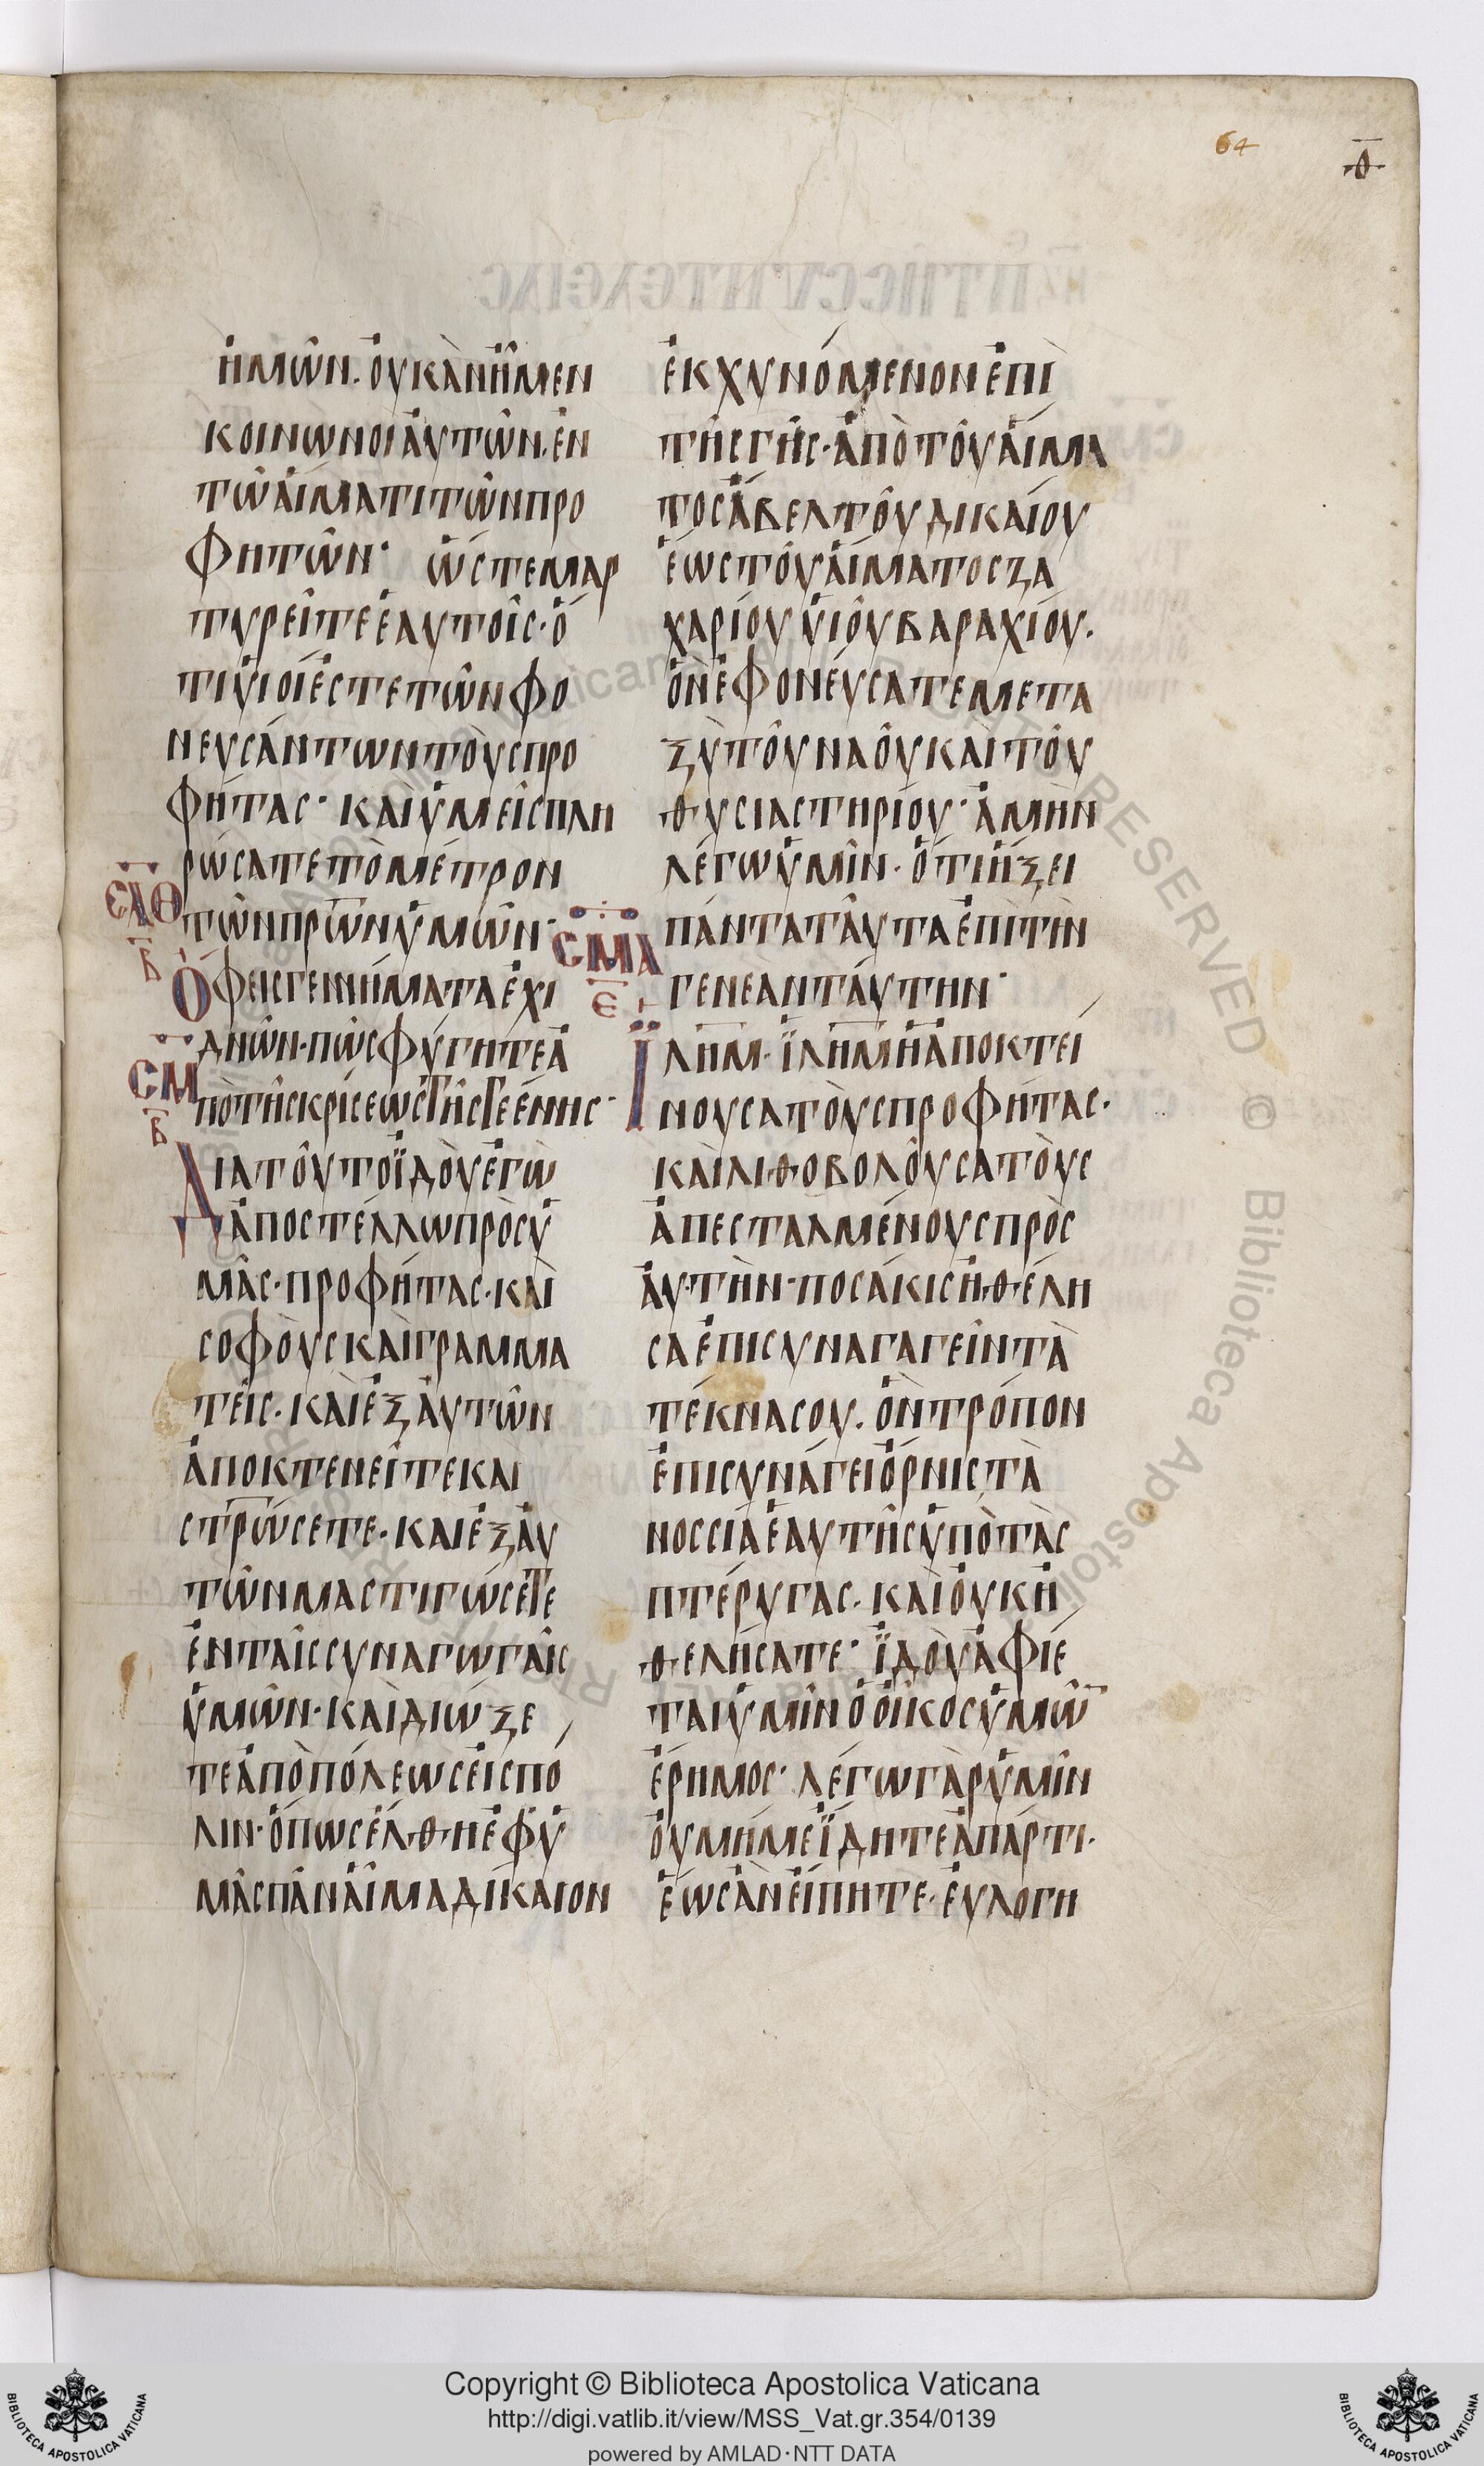 64
θ
ἡμῶν. οὐκ ἂν ἦμεν
κοινωνοὶ αὐτῶν. ἐν
τῶ αἵματι τῶν προ
φητῶν· ὥστε μαρ
τυρεῖτε ἑαυτοῖς· ὅ
τι υἱοί ἐστε τῶν φο
νευσάντων τοὺς προ
φήτας· καὶ ὑμεῖς πλη
ρώσατε τὸ μέτρον
τῶν πρ̅ω̅ν ὑμῶν·
ΣΛΘ
Β
Ὄφεις γεννήματα ἐχι
δνῶν· πῶς φύγητε ἀ
πὸ τῆς κρίσεως τῆς γεέννης·
ΣΜ
Β
Διὰ τοῦτο ἰδοὺ ἐγὼ
ἀποστέλλω πρὸς ὑ
μᾶς· προφήτας· καὶ
σοφοὺς καὶ γραμμα
τεῖς. καὶ ἐξ αὐτῶν
ἀποκτενεῖτε καὶ
στρ̅ώσετε. καὶ ἐξ αὐ
τῶν μαστιγώσετε
ἐν ταῖς συναγωγαῖς
ὑμῶν· καὶ διώξε
τε ἀπὸ πόλεως εἰς πό
λιν· ὅπως ἔλθη ἐφ' ὑ
μᾶς πᾶν αἷμα δίκαιον
ἐκχυνόμενον ἐπὶ
τῆς γῆς· ἀπὸ τοῦ αἵμα
τος ἄβελ τοῦ δικαίου
ἕως τοῦ αἵματος ζα
χαρίου υἱοῦ βαραχίου.
ὃν ἐφονεύσατε μετα
ξὺ τοῦ ναοῦ καὶ τοῦ
θυσιαστηρίου· ἀμὴν
λέγω ὑμῖν· ὅτι ἥξει
πάντα ταῦτα ἐπὶ τὴν
γενεὰν ταύτην·
ΣΜΑ
Ε
Ϊλ̅η̅μ· ϊλ̅η̅μ ἡ ἀποκτεί
νουσα τοὺς προφήτας·
καὶ λιθοβολοῦσα τοὺς
ἀπεσταλμένους πρὸς
αὐτήν· ποσάκις ἠθέλη
σα ἐπισυναγαγεῖν τὰ
τέκνα σου. ὃν τρόπον
ἐπισυνάγει ὄρνις τὰ
νοσσία ἑαυτῆς ὑπὸ τὰς
πτέρυγας. καὶ οὐκ ἠ
θελήσατε· ἰδοὺ ἀφίε
ται ὑμῖν ὁ οἶκος ὑμῶ̅
ἔρημος· λέγω γὰρ ὑμῖν
οὐ μή με ἴδητε ἀπάρτι.
ἕως ἂν εἴπητε· εὐλογη
Copyright © Biblioteca Apostolica Vaticana
http://digi.vatlib.it/view/MSS_Vat.gr.354/0139
powered by AMLAD·NTT DATA